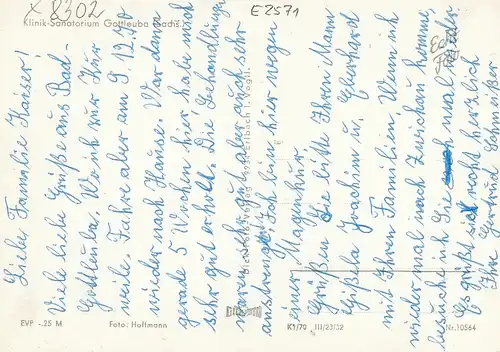 x 8302
E 2571
Klinik-Sanatorium Gottleuba Sachs.
Liebe Familie Kaiser!
Viele liebe Grüße aus Bad-
Gottleuba. Wo ich zur Kur
weile. Fahre aber am 9. 12. 70
wieder nach Hause. War dann
gerade 5 Wochen hier habe mich
sehr gut erholt. Die Behandlungen
waren sehr gut aber auch sehr
anstrengend. Ich bin hier wegen
einer Magenkur.
Grüßen Sie bitte Ihren Mann
Gisela Joachim u. Eberhard
mit Ihren Familien. Wenn ich
wieder mal nach Zwickau komme,
besuche ich Sie mal wieder.
Es grüßt recht herzlich
Ihre Gertrud
Echt
Foto
Bild und Heimat Reichenbach i. Vogtl.
EVP -.25 M
Foto: Hoffmann
K1/70 III/23/32
Nr. 10564